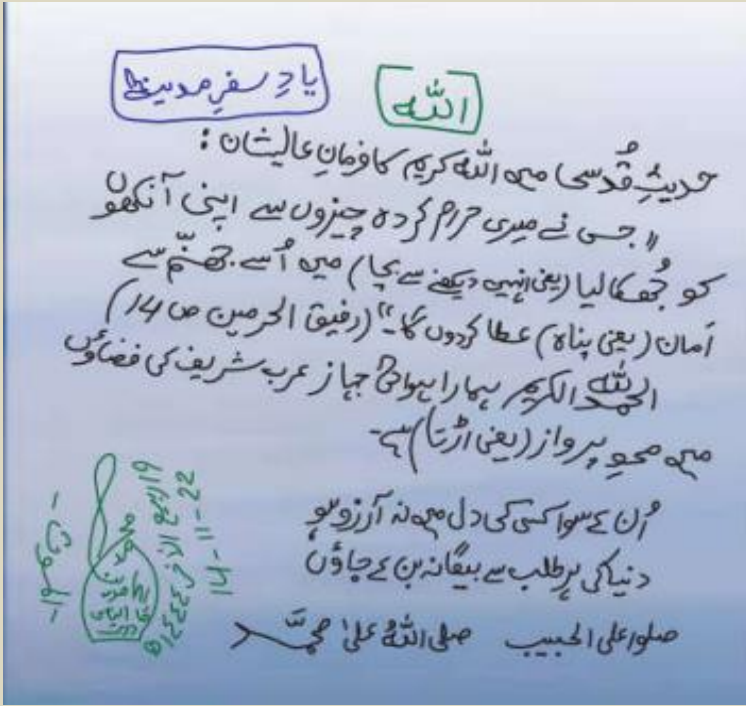 اللہ
یادِ سفرِ مدینہ
حدیثِ قُدسی میں اللہ کریم کا فرمانِ عالیشان :
"جس نے میری حرام کردہ چیزوں سے اپنی آنکھوں
کو جُھکا لیا (یعنی انہیں دیکھنے سے بچا) میں اُسے جہنّم سے
اَمان (یعنی پناہ) عطا کردوں گا۔" (رفیق الحرمین ص 14)
الحمدللہ الکریم ہمارا ہوائی جہاز عرب شریف کی فضاؤں
میں محوِ پرواز (یعنی اڑتا) ہے۔
اُن کے سوا کسی کی دل میں نہ آرزو ہو
دنیا کی ہر طلب سے بیگانہ بن کے جاؤں
صلوا علی الحبیب صلی اللہُ علیٰ محمَّد
19 ربیع الآخر ١٤٤٤ھ
14-11-22
-الموت-